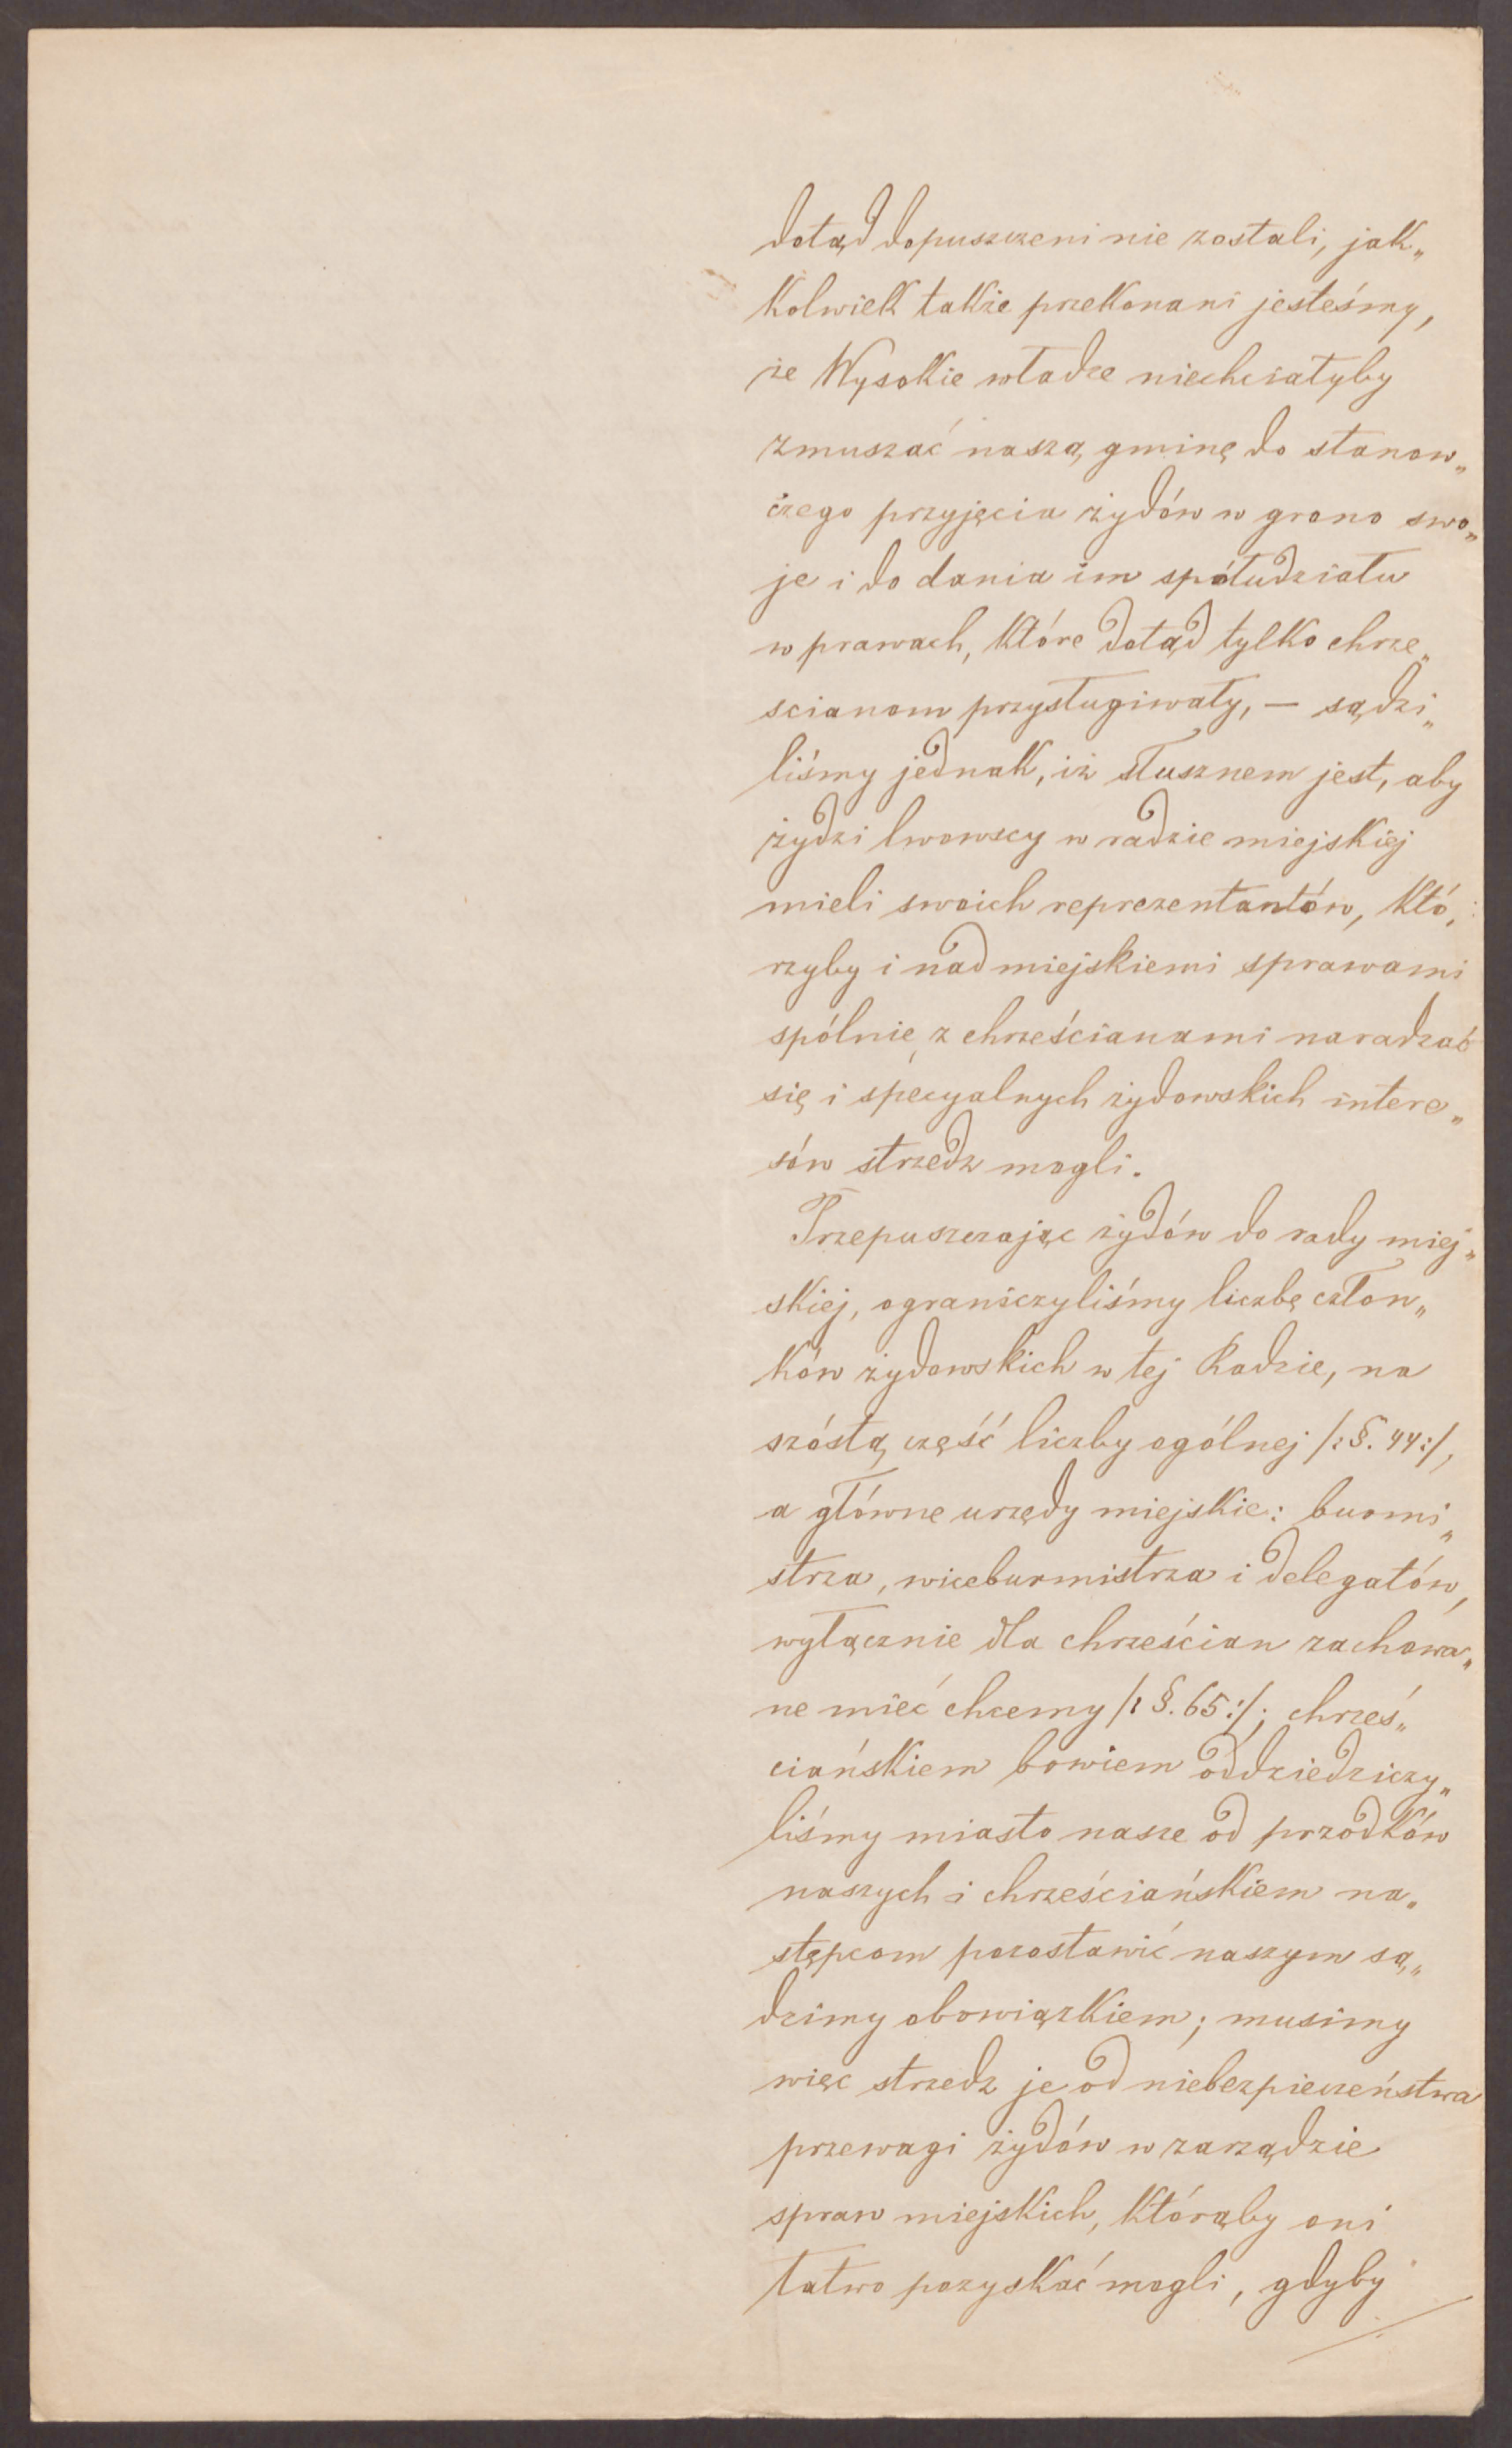 dotąd dopuszczeni nie zostali, jak„
kolwiek także przekonani jesteśmy,
że Wysokie władze niechciałyby
zmuszać naszą gminę do stanow„
czego przyjęcia żydów w grono swo„
je i do dania im spółudziału
w prawach, które dotąd tylko chrze„
scianom przysługiwały, — sądzi„
liśmy jednak, iż słusznem jest, aby
żydzi lwowscy w radzie miejskiej
mieli swoich reprezentantów, któ„
rzyby i nad miejskiemi sprawami
spólnie z chrześcianami naradzać
się i specyalnych żydowskich intere„
sów strzedz mogli.
Przepuszczając żydów do rady miej„
skiej, ograniczyliśmy liczbę człon„
ków żydowskich w tej Radzie, na
szóstą część liczby ogólnej /:§. 44:/,
a główne urzędy miejskie: buomi„
strza, wiceburmistrza i delegatów,
wyłącznie dla chrześcian zachowa„
ne mieć chcemy /: §. 65:/; chrześ„
ciańskiem bowiem oddziedziczy„
liśmy miasto nasze od przodków
naszych i chrześciańskiem na„
stępcom pozostawić naszym są„
dzimy obowiązkiem; musimy
więc strzedz je od niebezpieczeństwa
przewagi żydów w zarządzie
spraw miejskich, którąby oni
łatwo pozyskać mogli, gdyby